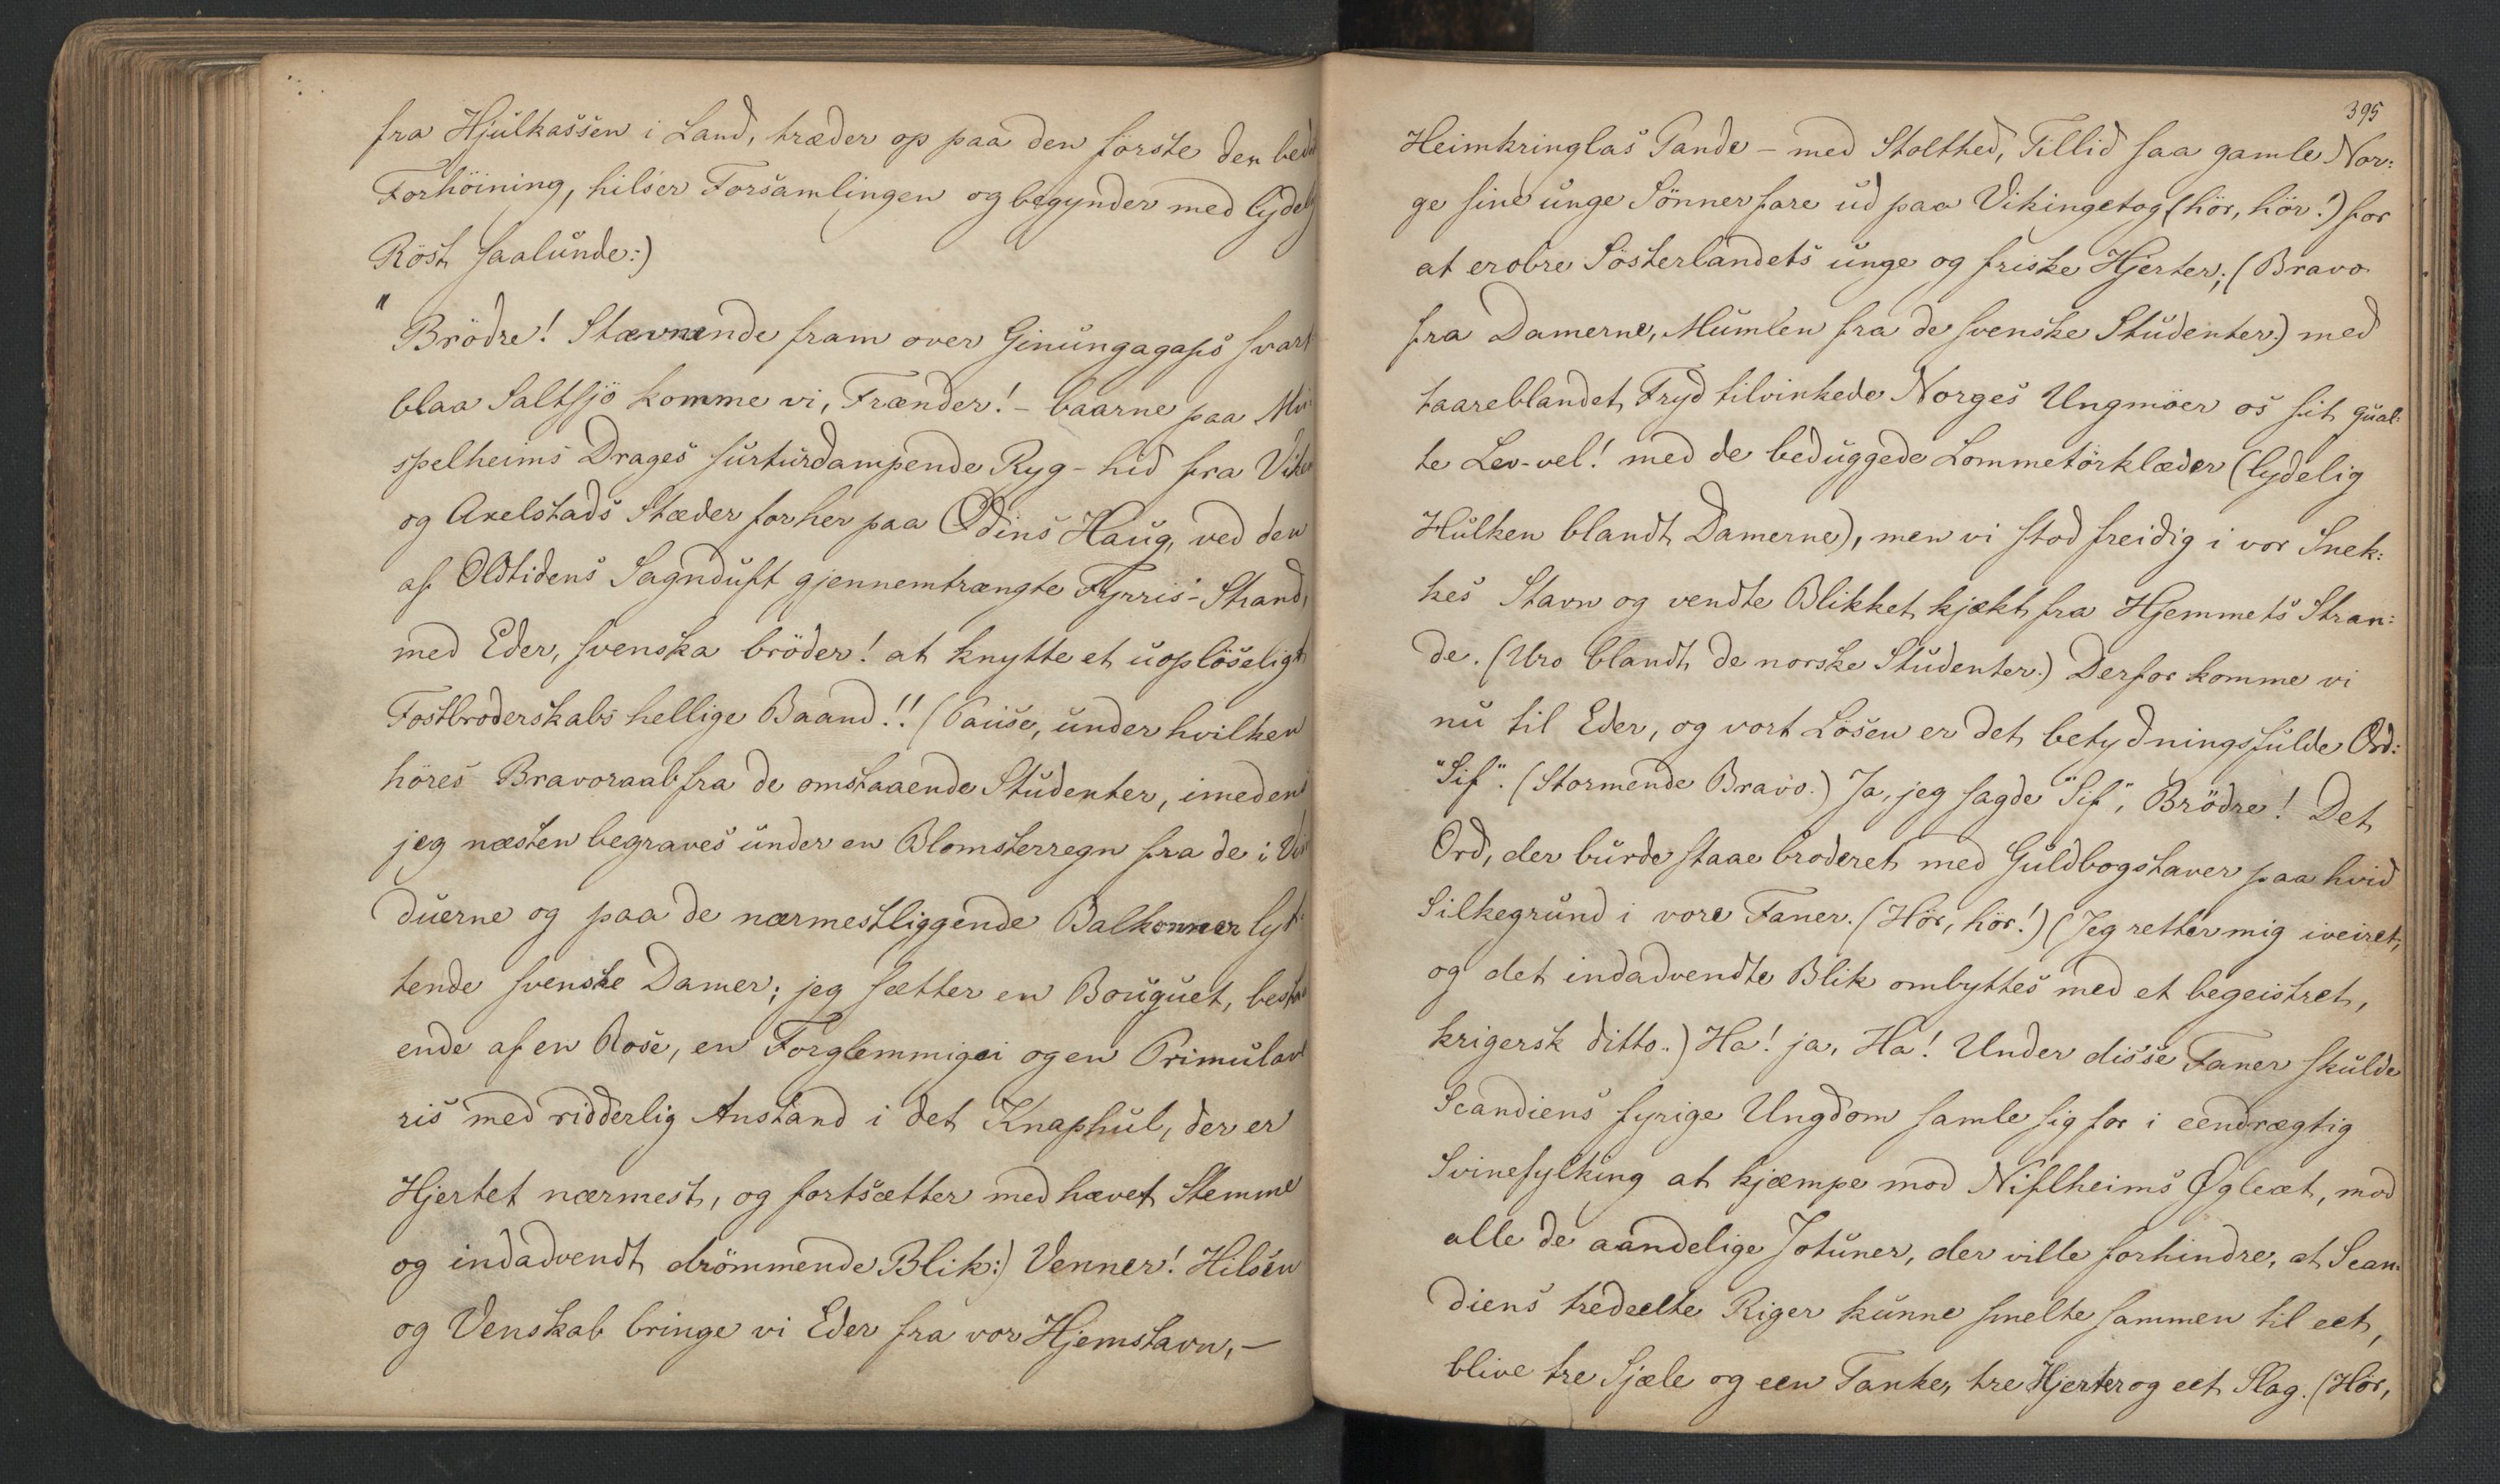 fra Hjulkassen i Land, træder op paa den förste den bedste
Forhöining, hilser Forsamlingen og begynder med lydelig
Röst saalunde:)
"Brödre! Stævnende fram over Ginungagaps svart
blaa Saltsjö komme vi, Frænder! - baarne paa Mu-
spelheims Drages surturdampende Ryg - hid fra Viken
og Axelstads Stæder for her paa Odins Haug, ved den
af Oldtidens Sagnduft gjennemtrængte Fyrris-Strand,
med Eder, svenska bröder! at knytte et uoplöseligt
Fostbroderskabs hellige Baand!! (Pause, under hvilken
höres Bravoraab fra de omstaaende Studenter, imedens
jeg næsten begraves under en Blomsterregn fra de i Vin
duerne og paa de nærmestliggende Balkonner lyt-
tende svenske Damer; jeg sætter en Bouquet, bestaa
ende af en Rose, en Forglemmigei og en Primulave
ris med ridderlig Anstand i det Knaphul, der er
Hjertet nærmest, og fortsætter med hævet Stemme
og indadvendt drömmende Blik:) Venner! Hilsen
og Venskab bringe vi Eder fra vor Hjemstavn, —
395
Heimkringlas Pande - med Stolthed, Tillid saa gamle Nor:
ge sine unge Sönner fare ud paa Vikingetog (hör, hör!) for
at erobre Sösterlandets unge og friske Hjerter; (Bravo
fra Damerne, Mumlen fra de svenske Studenter.) med
taareblandet Fryd tilvinkede Norges Ungmöer os sit qual:
te Lev-vel! med de beduggede Lommetörklæder (lydelig
Hulken blandt Damerne), men vi stod freidig i vor Snek:
kes Stavn og vendte Blikket kjækt fra Hjemmets Stran:
de. (Uro blandt de norske Studenter.) Derfor komme vi
nu til Eder, og vort Lösen er det betydningsfulde Ord:
"Sif". (Stormende Bravo.) Ja, jeg sagde "Sif", Brödre! Det
Ord, der burde staae broderet med Guldbogstaver paa hvid
Silkegrund i vore Faner. (Hör, hör!) (Jeg retter mig iveiret,
og det indadvendte Blik ombyttes med et begeistret,
krigersk ditto.) Ha! ja, Ha! Under disse Faner skulde
Scandiens fyrige Ungdom samle sig for i eendrægtig
Svinefylking at kjæmpe mod Niflheims Øgleæt, mod
alle de aandelige Jotuner, der ville forhindre, at Scan:
diens tredeelte Riger kunne smelte sammen til eet,
blive tre Sjæle og een Tanke, tre Hjerter og eet Slag. (Hör,